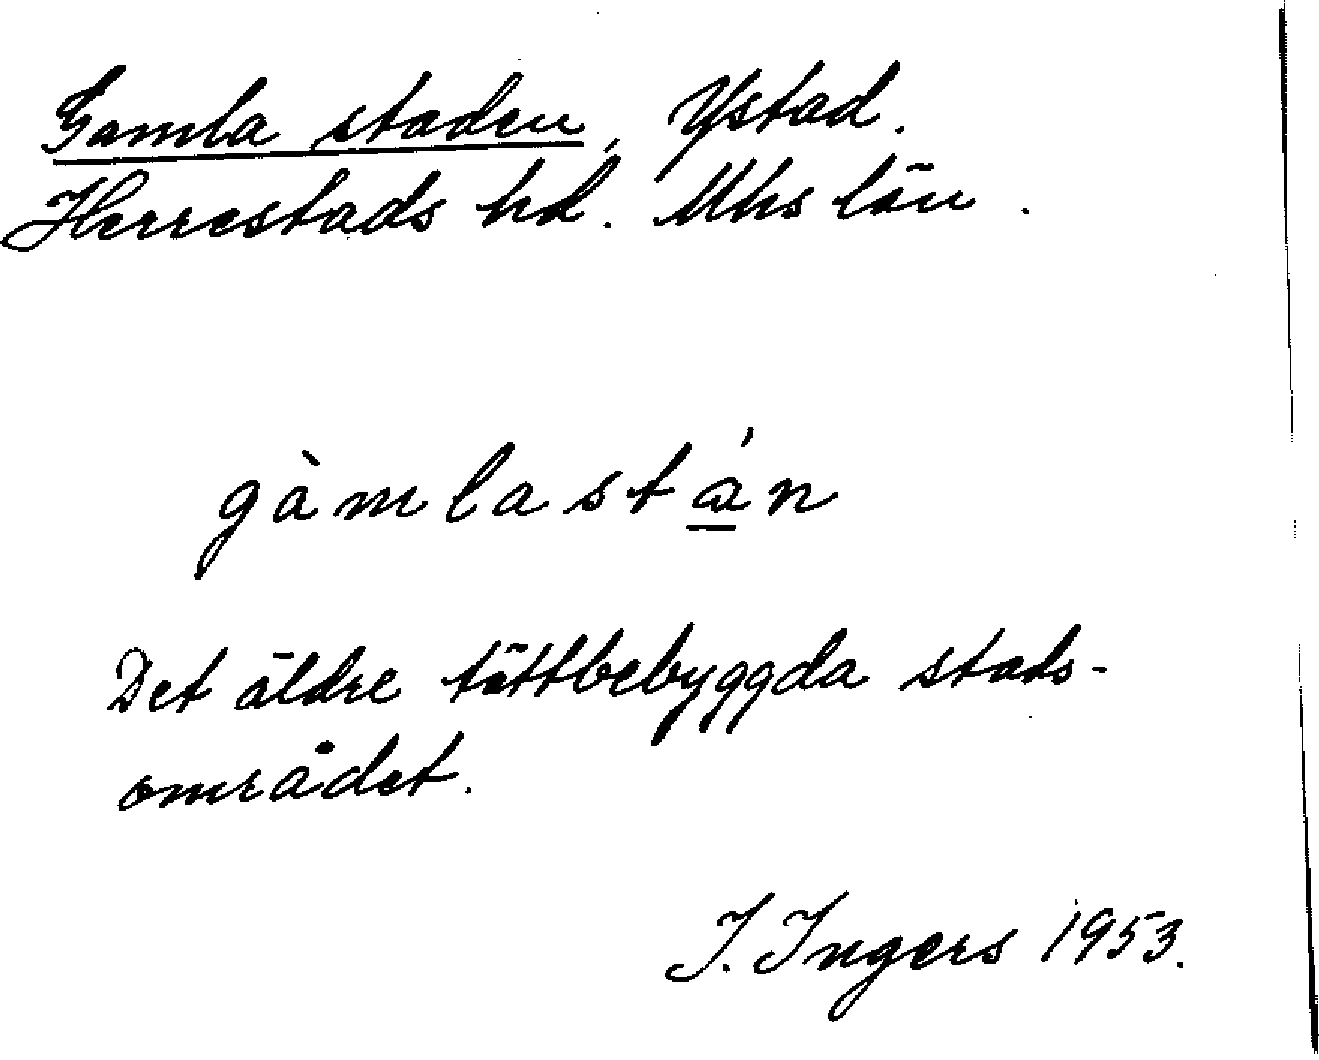 Gamla staden, Ystad.
Herrestads hd. Mhs län.
gàmlastán
Det äldre tättbebyggda stads-
området.
I. Ingers 1953.